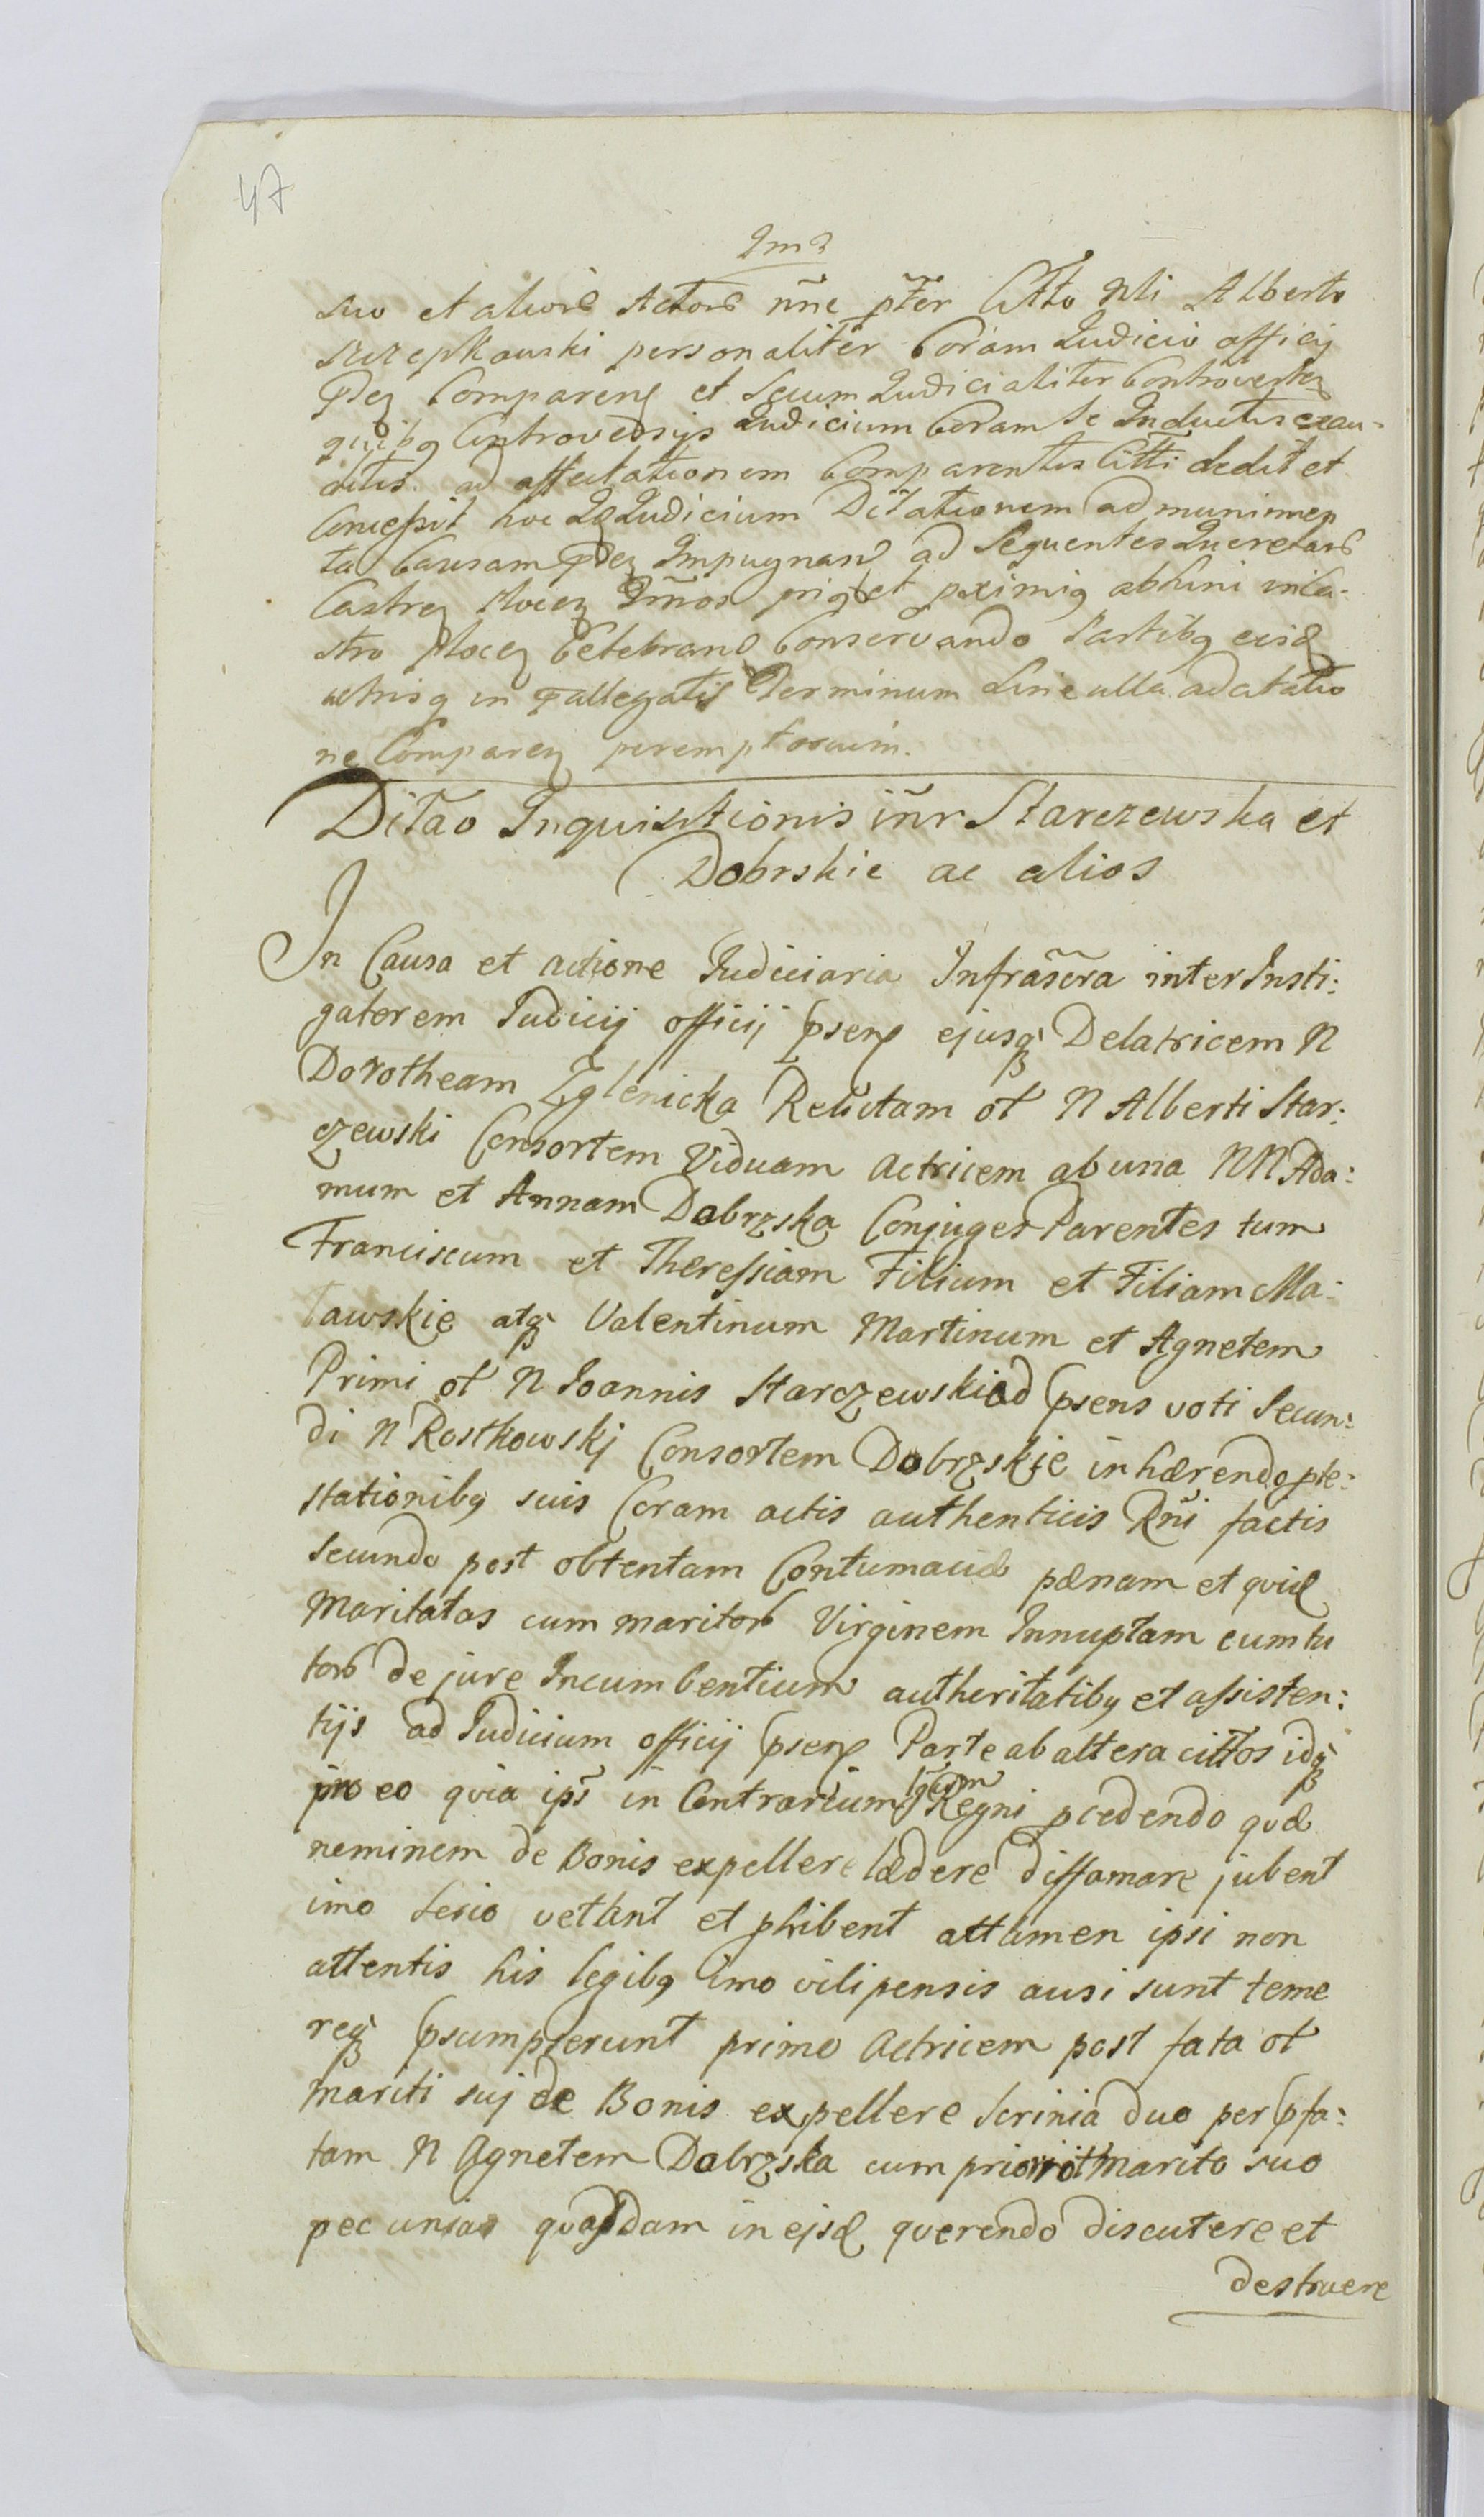 47
Ima
suo et aliorũ Actorũ nñe pter Citto Nli Alberto
Szczepkowski personaliter Coram Judicio officij
Comparen et Secum Judicialiter Controverten
quibq Controversijs Judicium Coram Se Inductis exau-
ditis ad affectationem Comparentis Citti dedit et
Concessit hoc Judicium Dilationem ad munimen
ta Causam Impugnan ad Sequentes Querelarũ
Castren Plocen pximiq abhinc in Ca-
stro Plocen Celebrand Conservando Partibq eisd
actisq in allegatis Terminum Sine ulla adcitatio
ne Comparen peremptorium.
Dilao Inquisitionis inr Starczewska et
Dobrskie ac alios
In Causa et actione Judiciaria Infrascra inter Insti:
gatorem Judicij officij psens ejusq Delatricem N
Dorotheam Zglenicka Relictam ol N Alberti Star:
czewski Consortem Viduam actricem ab una NN Ada:
mum et Annam Dobrzska Conjuges Parentes tum
Franciscum et Theressiam Filium et Filiam Ma:
lawskie atq Valentinum Martinum et Agnetem
Primi ol N Joannis Starczewski ad psens voti Secun:
di N Rostkowskj Consortem Dobrzskie inhærendo pte:
stationibq suis Coram actis authenticis Rni factis
Secundo post obtentam Contumaciæ pænam et quid
Maritatas cum maritorũ Virginem Innuptam cum tu
torũ de jure Incumbentium authoritatibq et assisten:
tijs ad Judicium officij psens Parte ab altera cittos idq
pro eo quia ipsi in Contrarium legum Regni pcedendo quæ
neminem de Bonis expellere lædere diffamare jubent
imo serio vetant et phibent attamen ipsi non
attentis his legibq imo vilipensis ausi sunt teme
req psumpserunt primo Actricem post fata ol
mariti suj de Bonis expellere Scrinia duo per pfa:
tam N Agnetem Dobrzska cum priori ol marito suo
pecunias quasdam in ejsd querendo discutere et
destruere